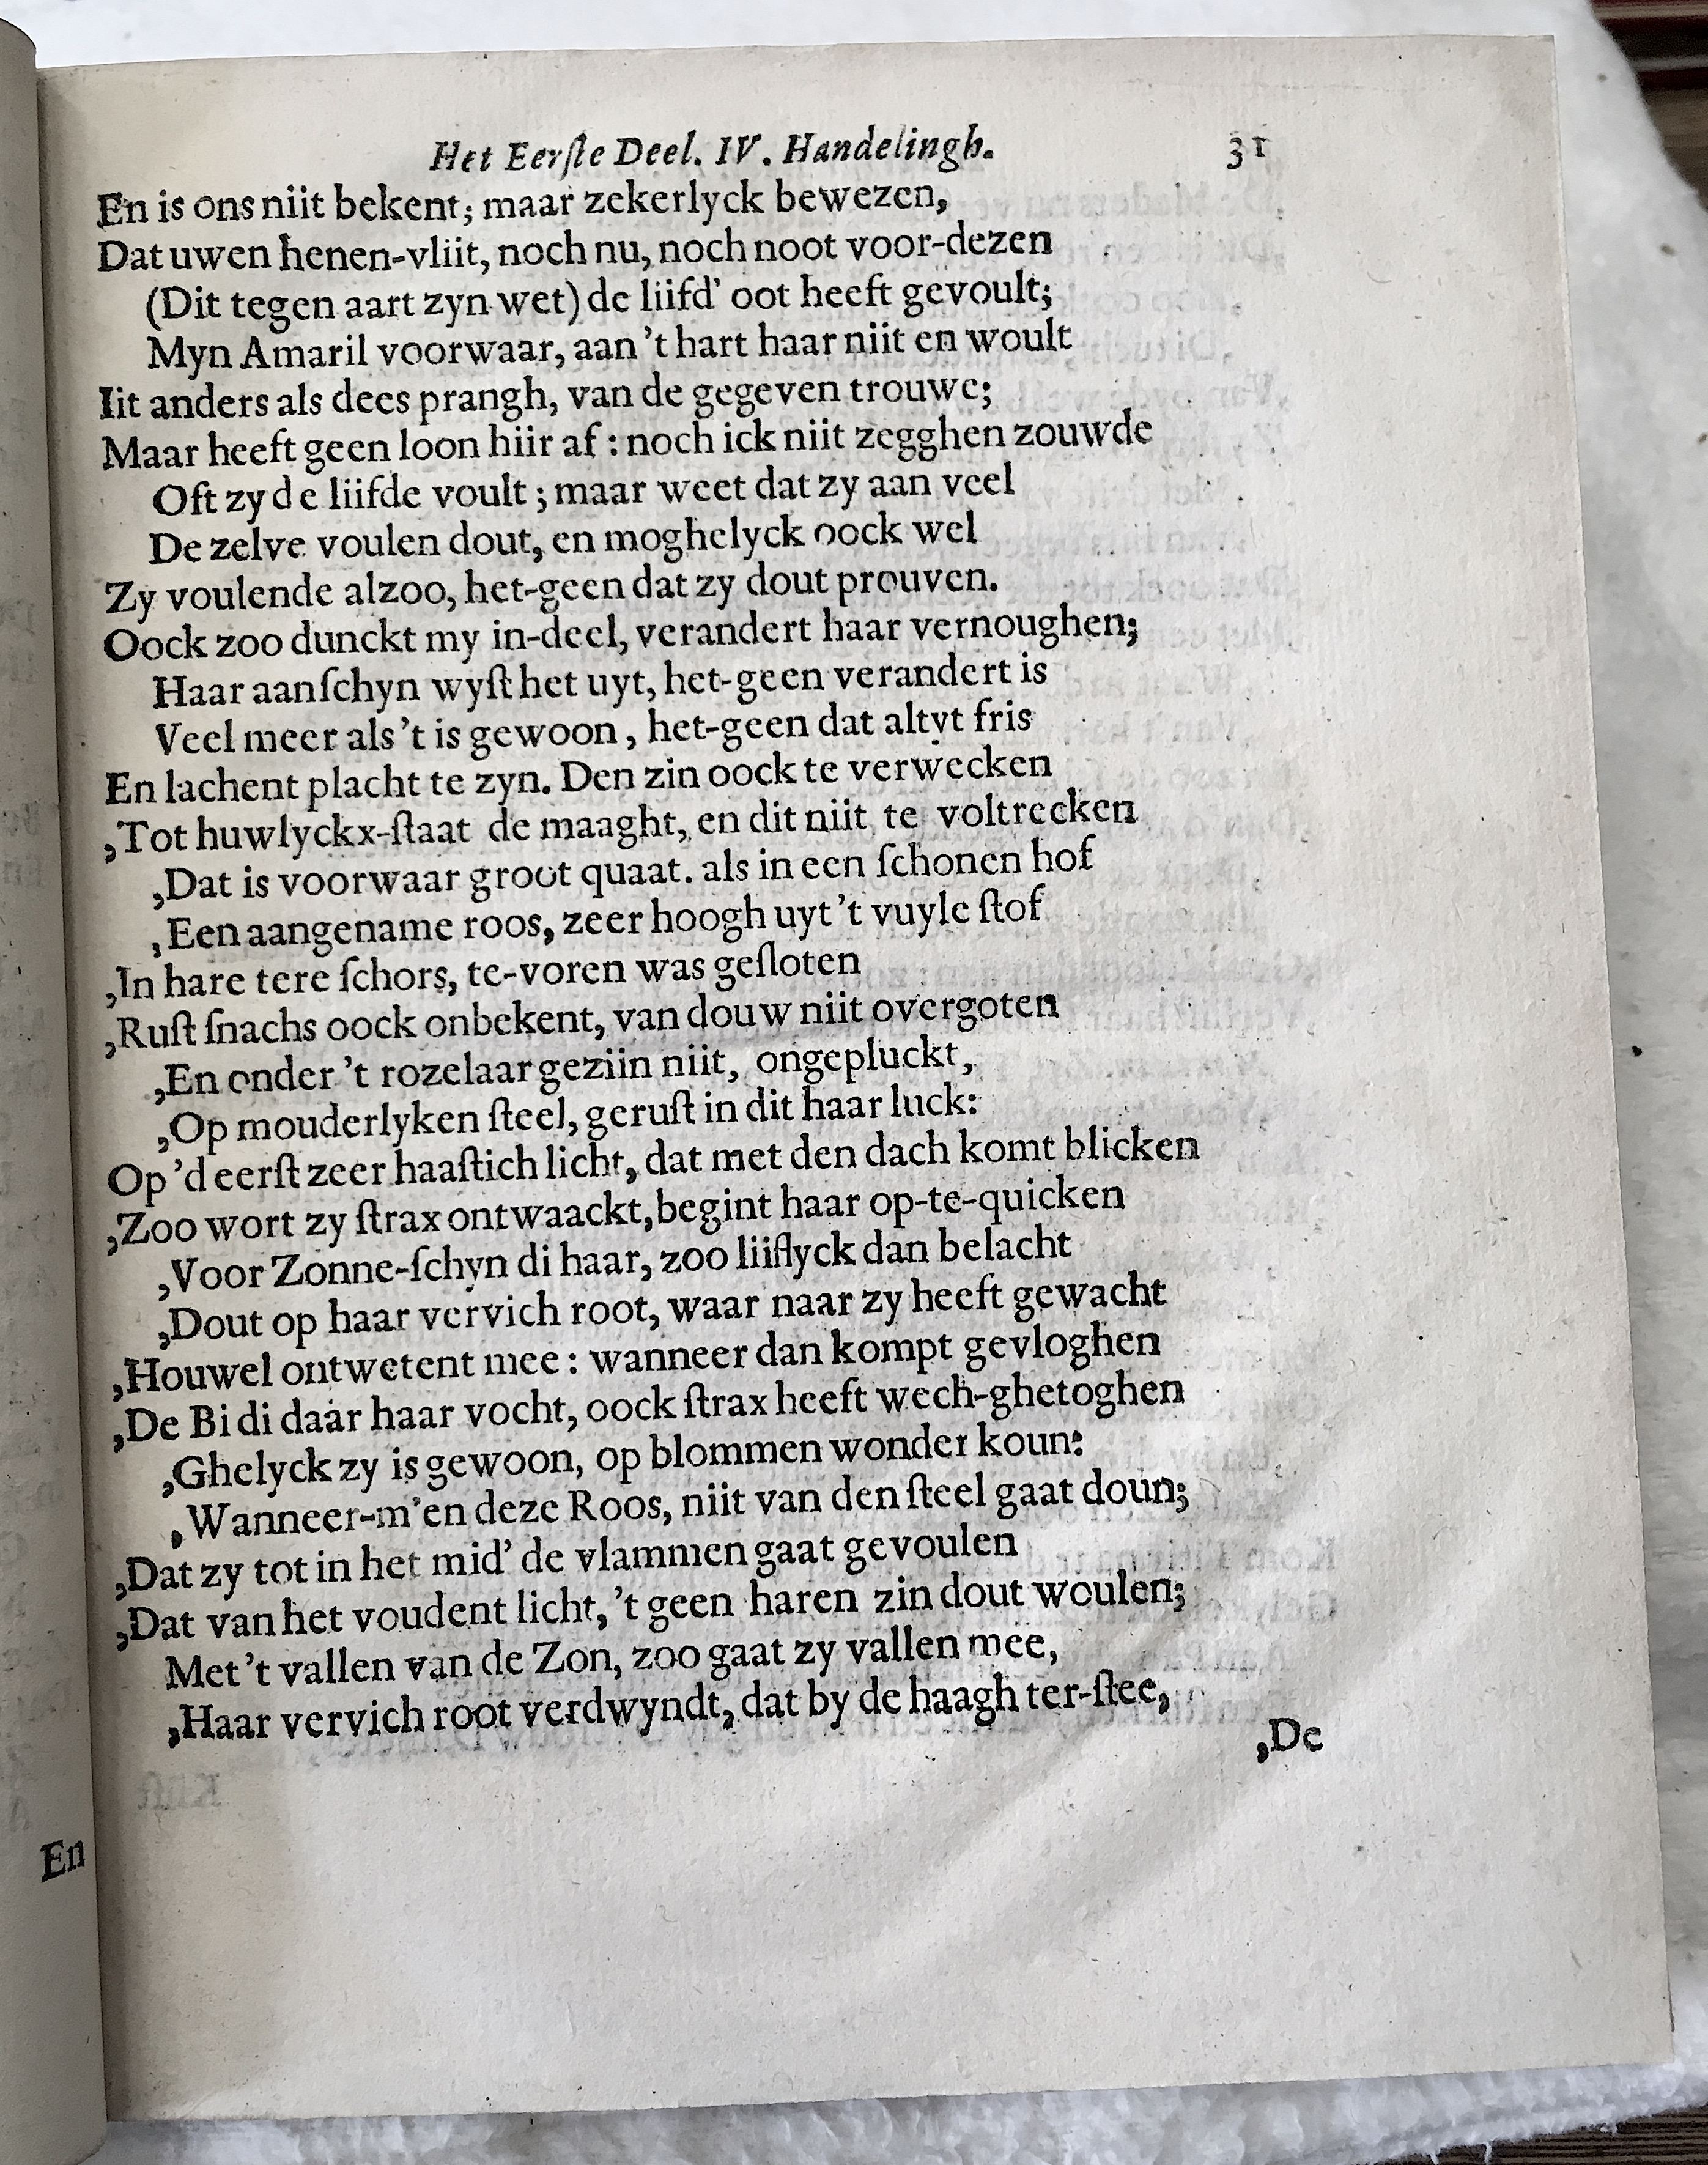 Het Eerſte Deel. IV. Handelingh. 31
En is ons niit bekent; maar zekerlyck bewezen,
Dat uwen henen-vliit, noch nu, noch noot voor-dezen
(Dit tegen aart zyn wet) de liifd' oot heeft gevoult;
Myn Amaril voorwaar, aan 't hart haar niit en woult
Iit anders als dees prangh, van de gegeven trouwe;
Maar heeft geen loon hiir af: noch ick niit zegghen zouwde
Oft zy de liifde voult; maar weet dat zy aan veel
De zelve voulen dout, en moghelyck oock wel
Zy voulende alzoo, het-geen dat zy dout prouven.
Oock zoo dunckt my in-deel, verandert haar vernoughen;
Haar aanſchyn wyſt het uyt, het-geen verandert is
Veel meer als 't is gewoon, het-geen dat altyt fris
En lachent placht te zyn. Den zin oock te verwecken
,Tot huwlyckx-ſtaat de maaght, en dit niit te voltrecken
,Dat is voorwaar groot quaat. als in een ſchonen hof
,Een aangename roos, zeer hoogh uyt 't vuyle ſtof
,In hare tere ſchors, te-voren was geſloten
,Ruſt ſnachs oock onbekent, van douw niit overgoten
,En onder 't rozelaar geziin niit, ongepluckt,
,Op mouderlyken ſteel, geruſt in dit haar luck:
Op 'd eerſt zeer haaſtich licht, dat met den dach komt blicken
,Zoo wort zy ſtrax ontwaackt, begint haar op-te-quicken
,Voor Zonne-ſchyn di haar, zoo liiflyck dan belacht
,Dout op haar vervich root, waar naar zy heeft gewacht
,Houwel ontwetent mee: wanneer dan kompt gevloghen
,De Bi di daar haar vocht, oock ſtrax heeft wech-ghetoghen
,Ghelyck zy is gewoon, op blommen wonder koun:
,Wanneer-m'en deze Roos, niit van den ſteel gaat doun;
,Dat zy tot in het mid' de vlammen gaat gevoulen
,Dat van het voudent licht, 't geen haren zin dout woulen;
Met 't vallen van de Zon, zoo gaat zy vallen mee,
,Haar vervich root verdwyndt, dat by de haagh ter-ſtee,
,De
En